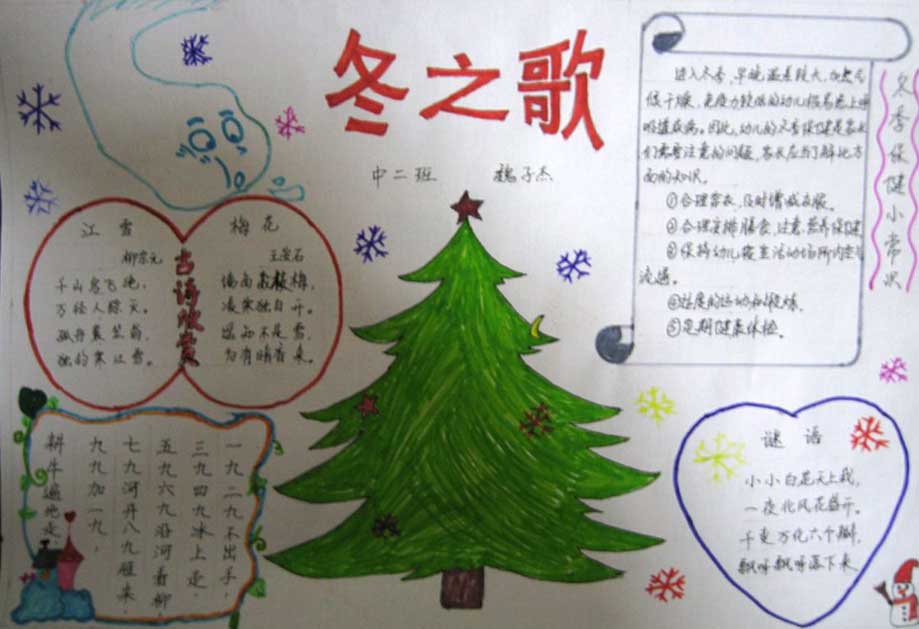 冬之歌
中二班 魏子杰
古诗欣赏
江雪
柳宗元
千山鸟飞绝，
万径人踪灭。
孤舟蓑笠翁，
独钓寒江雪。
梅花
王安石
墙角数枝梅，
凌寒独自开。
遥知不是雪，
为有暗香来。
冬季保健小常识
进入冬季，早晚温差较大，加上气
候干燥，免疫力较低的幼儿极易患上呼
吸道疾病。因此，幼儿的冬季保健是家长
们需要注意的问题，家长应当了解此方
面的知识。
①合理穿衣，及时增减衣服。
②合理安排膳食，注意营养保健
③保持幼儿寝室活动场所内空气
流通。
④适度的运动和锻炼。
⑤定期健康体检。
一九二九不出手，
三九四九冰上走，
五九六九沿河看柳，
七九河开八九雁来，
九九加一九，
耕牛遍地走
谜语
小小白花天上栽，
一夜北风花盛开。
千变万化六个瓣，
飘呀飘呀落下来